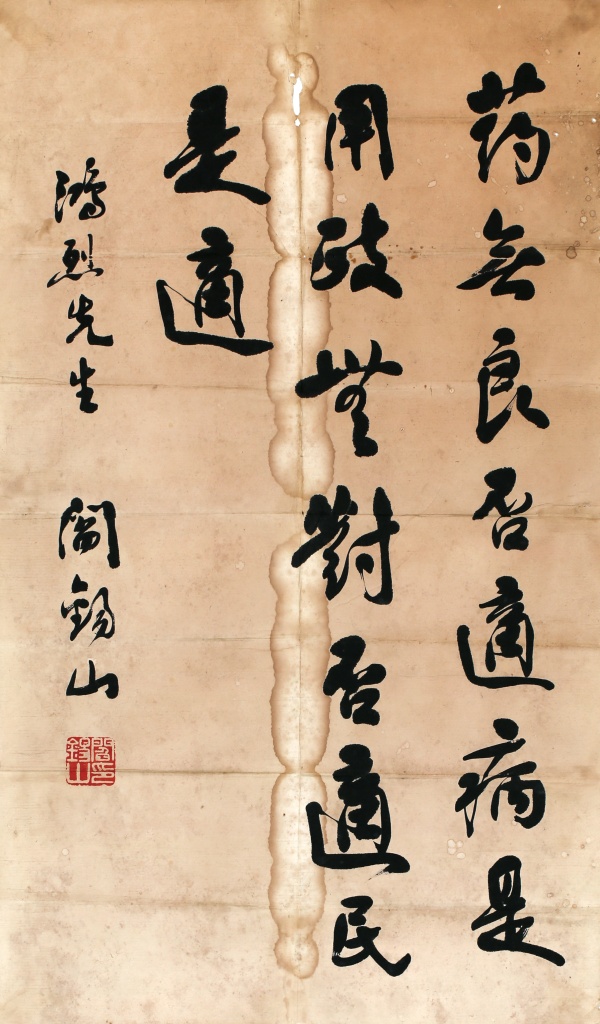 药無良否適病是
用政無對否適民
是適
鴻烈先生 閻錫山
閻印錫山